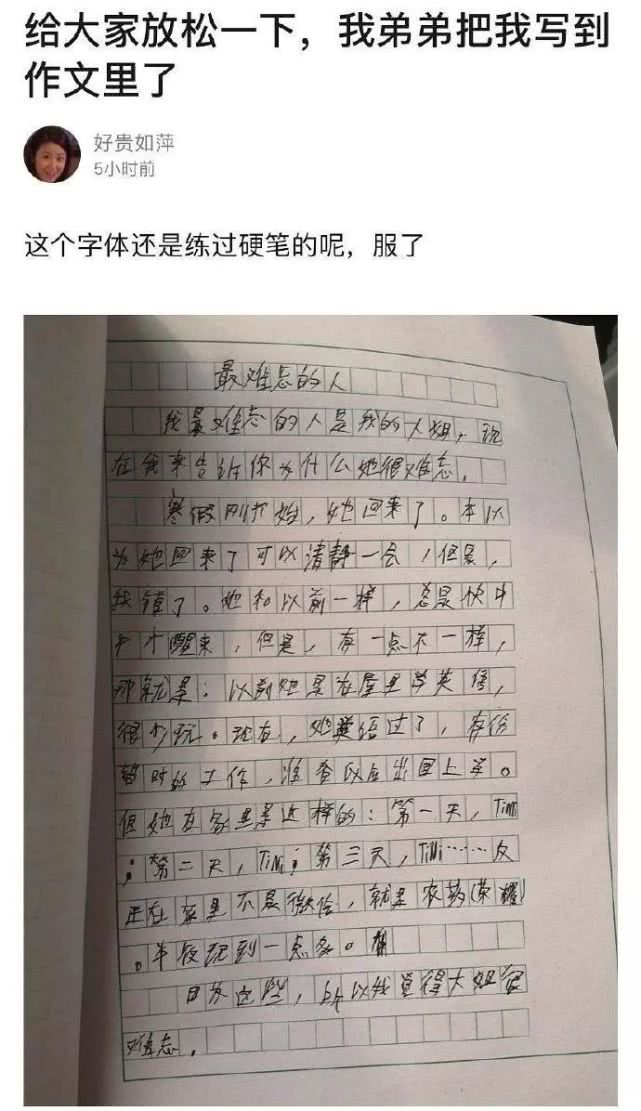 给大家放松一下，我弟弟把我写到
作文里了
好贵如萍
5小时前
这个字体还是练过硬笔的呢，服了
最难忘的人
我最难忘的人是我的大姐，现
在我来告诉你为什么她很难忘。
寒假刚开始，她回来了。本以
为她回来了可以清静一会，但是，
我错了。她和以前一样，总是快中
午才醒来，但是，有一点不一样，
那就是：以前她是在屋里学英语，
很少玩。现在，她英语过了，有份
暂时的工作，准备以后出国上学。
但她在家里是这样的：第一天，Timi
；第二天，Timi；第三天，Timi……反
正在家里不是微信，就是农药(荣耀)
。半夜玩到一点多。
因为这些，所以我觉得大姐很
难忘。